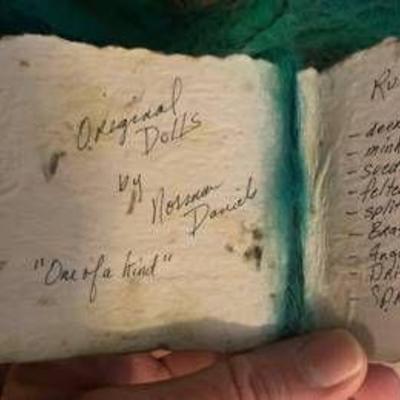 Original
Dolls
by
Norman
Daniels
"One of a kind"
Ru
- deer
- mink
- seed
- felte
- split